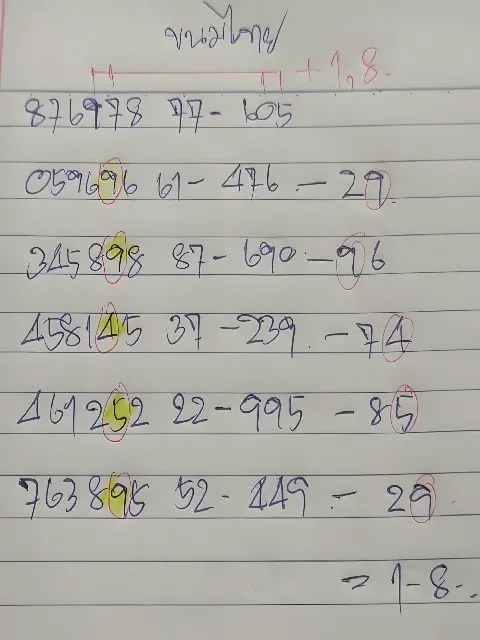 ขนมีไทย
+ 1,8.
876978 77 - 605
059696 61 - 476 - 29
345898 87 - 690 - 96
458145 37 - 239 - 74
461252 22 - 995 - 85
763895 52 - 449 - 29
= 1-8-.